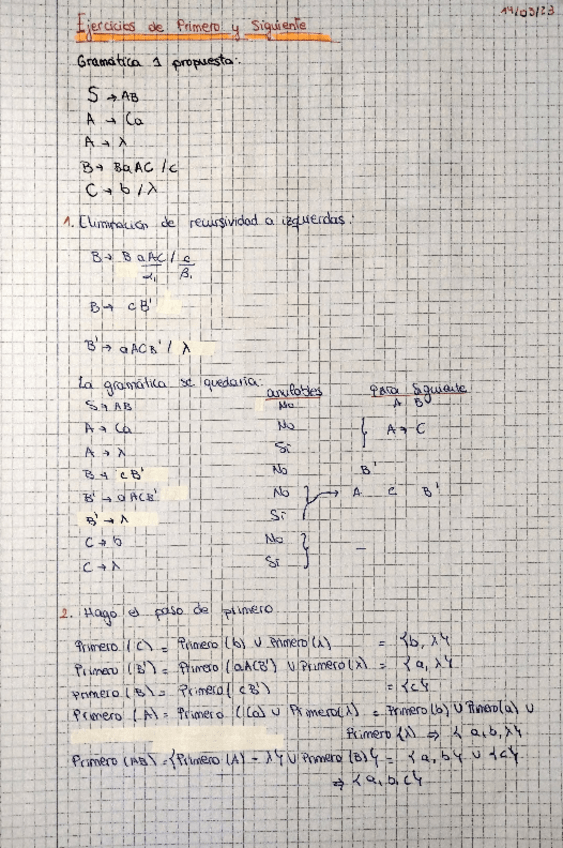 14/03/23
Ejercicios de Primero y Siguiente
Gramática 1 propuesta:
S → AB
A → Ca
A → λ
B → BaAC / c
C → b / λ
1. Eliminación de recursividad a izquierdas:
B → B aAC / c
α₁ β₁
B → cB'
B' → aACB' / λ
La gramática se quedaría: anulables Para Siguiente
S → AB No A B
A → Ca No A → C
A → λ Si
B → cB' No B'
B' → aACB' No → A C B'
B' → λ Si
C → b No —
C → λ Si
2. Hago el paso de primero
Primero (C) = Primero (b) ∪ Primero (λ) = {b, λ}
Primero (B') = Primero (aACB') ∪ Primero (λ) = {a, λ}
Primero (B) = Primero (cB') = {c}
Primero (A) = Primero (Ca) ∪ Primero (λ) = Primero (b) ∪ Primero (a) ∪
Primero (λ) ⇒ {a, b, λ}
Primero (AB) = {Primero (A) - λ} ∪ Primero (B)} = {a, b} ∪ {c}
⇒ {a, b, c}